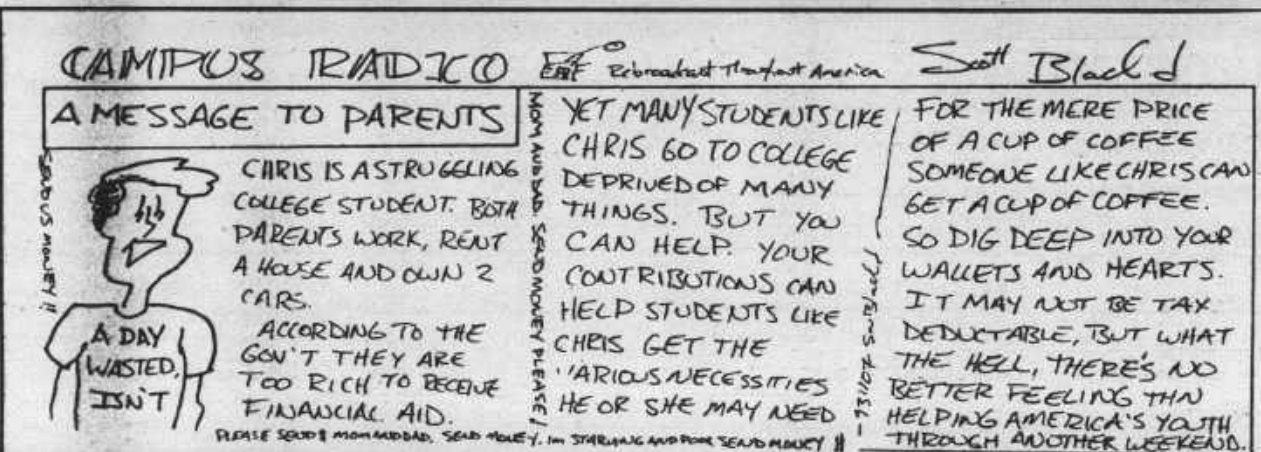 CAMPUS RADICO Rebroadcast Throughout America Scott Black
A MESSAGE TO PARENTS
SEND US MONEY!!
A DAY
WASTED,
ISN'T
CHRIS IS A STRUGGLING
COLLEGE STUDENT. BOTH
PARENTS WORK, RENT
A HOUSE AND OWN 2
CARS.
ACCORDING TO THE
GOV'T THEY ARE
TOO RICH TO RECEIVE
FINANCIAL AID.
MOM AND DAD, SEND MONEY PLEASE!
YET MANY STUDENTS LIKE
CHRIS GO TO COLLEGE
DEPRIVED OF MANY
THINGS. BUT YOU
CAN HELP. YOUR
CONTRIBUTIONS CAN
HELP STUDENTS LIKE
CHRIS GET THE
'ARIOUS NECESSITIES
HE OR SHE MAY NEED
FOR THE MERE PRICE
OF A CUP OF COFFEE
SOMEONE LIKE CHRIS CAN
GET A CUP OF COFFEE.
SO DIG DEEP INTO YOUR
WALLETS AND HEARTS.
IT MAY NOT BE TAX
DEDUCTABLE, BUT WHAT
THE HELL, THERE'S NO
BETTER FEELING THN
HELPING AMERICA'S YOUTH
THROUGH ANOTHER WEEKEND.
PLEASE SEND $ MOM AND DAD, SEND MONEY. IM STARVING AND POOR SEND MONEY !!